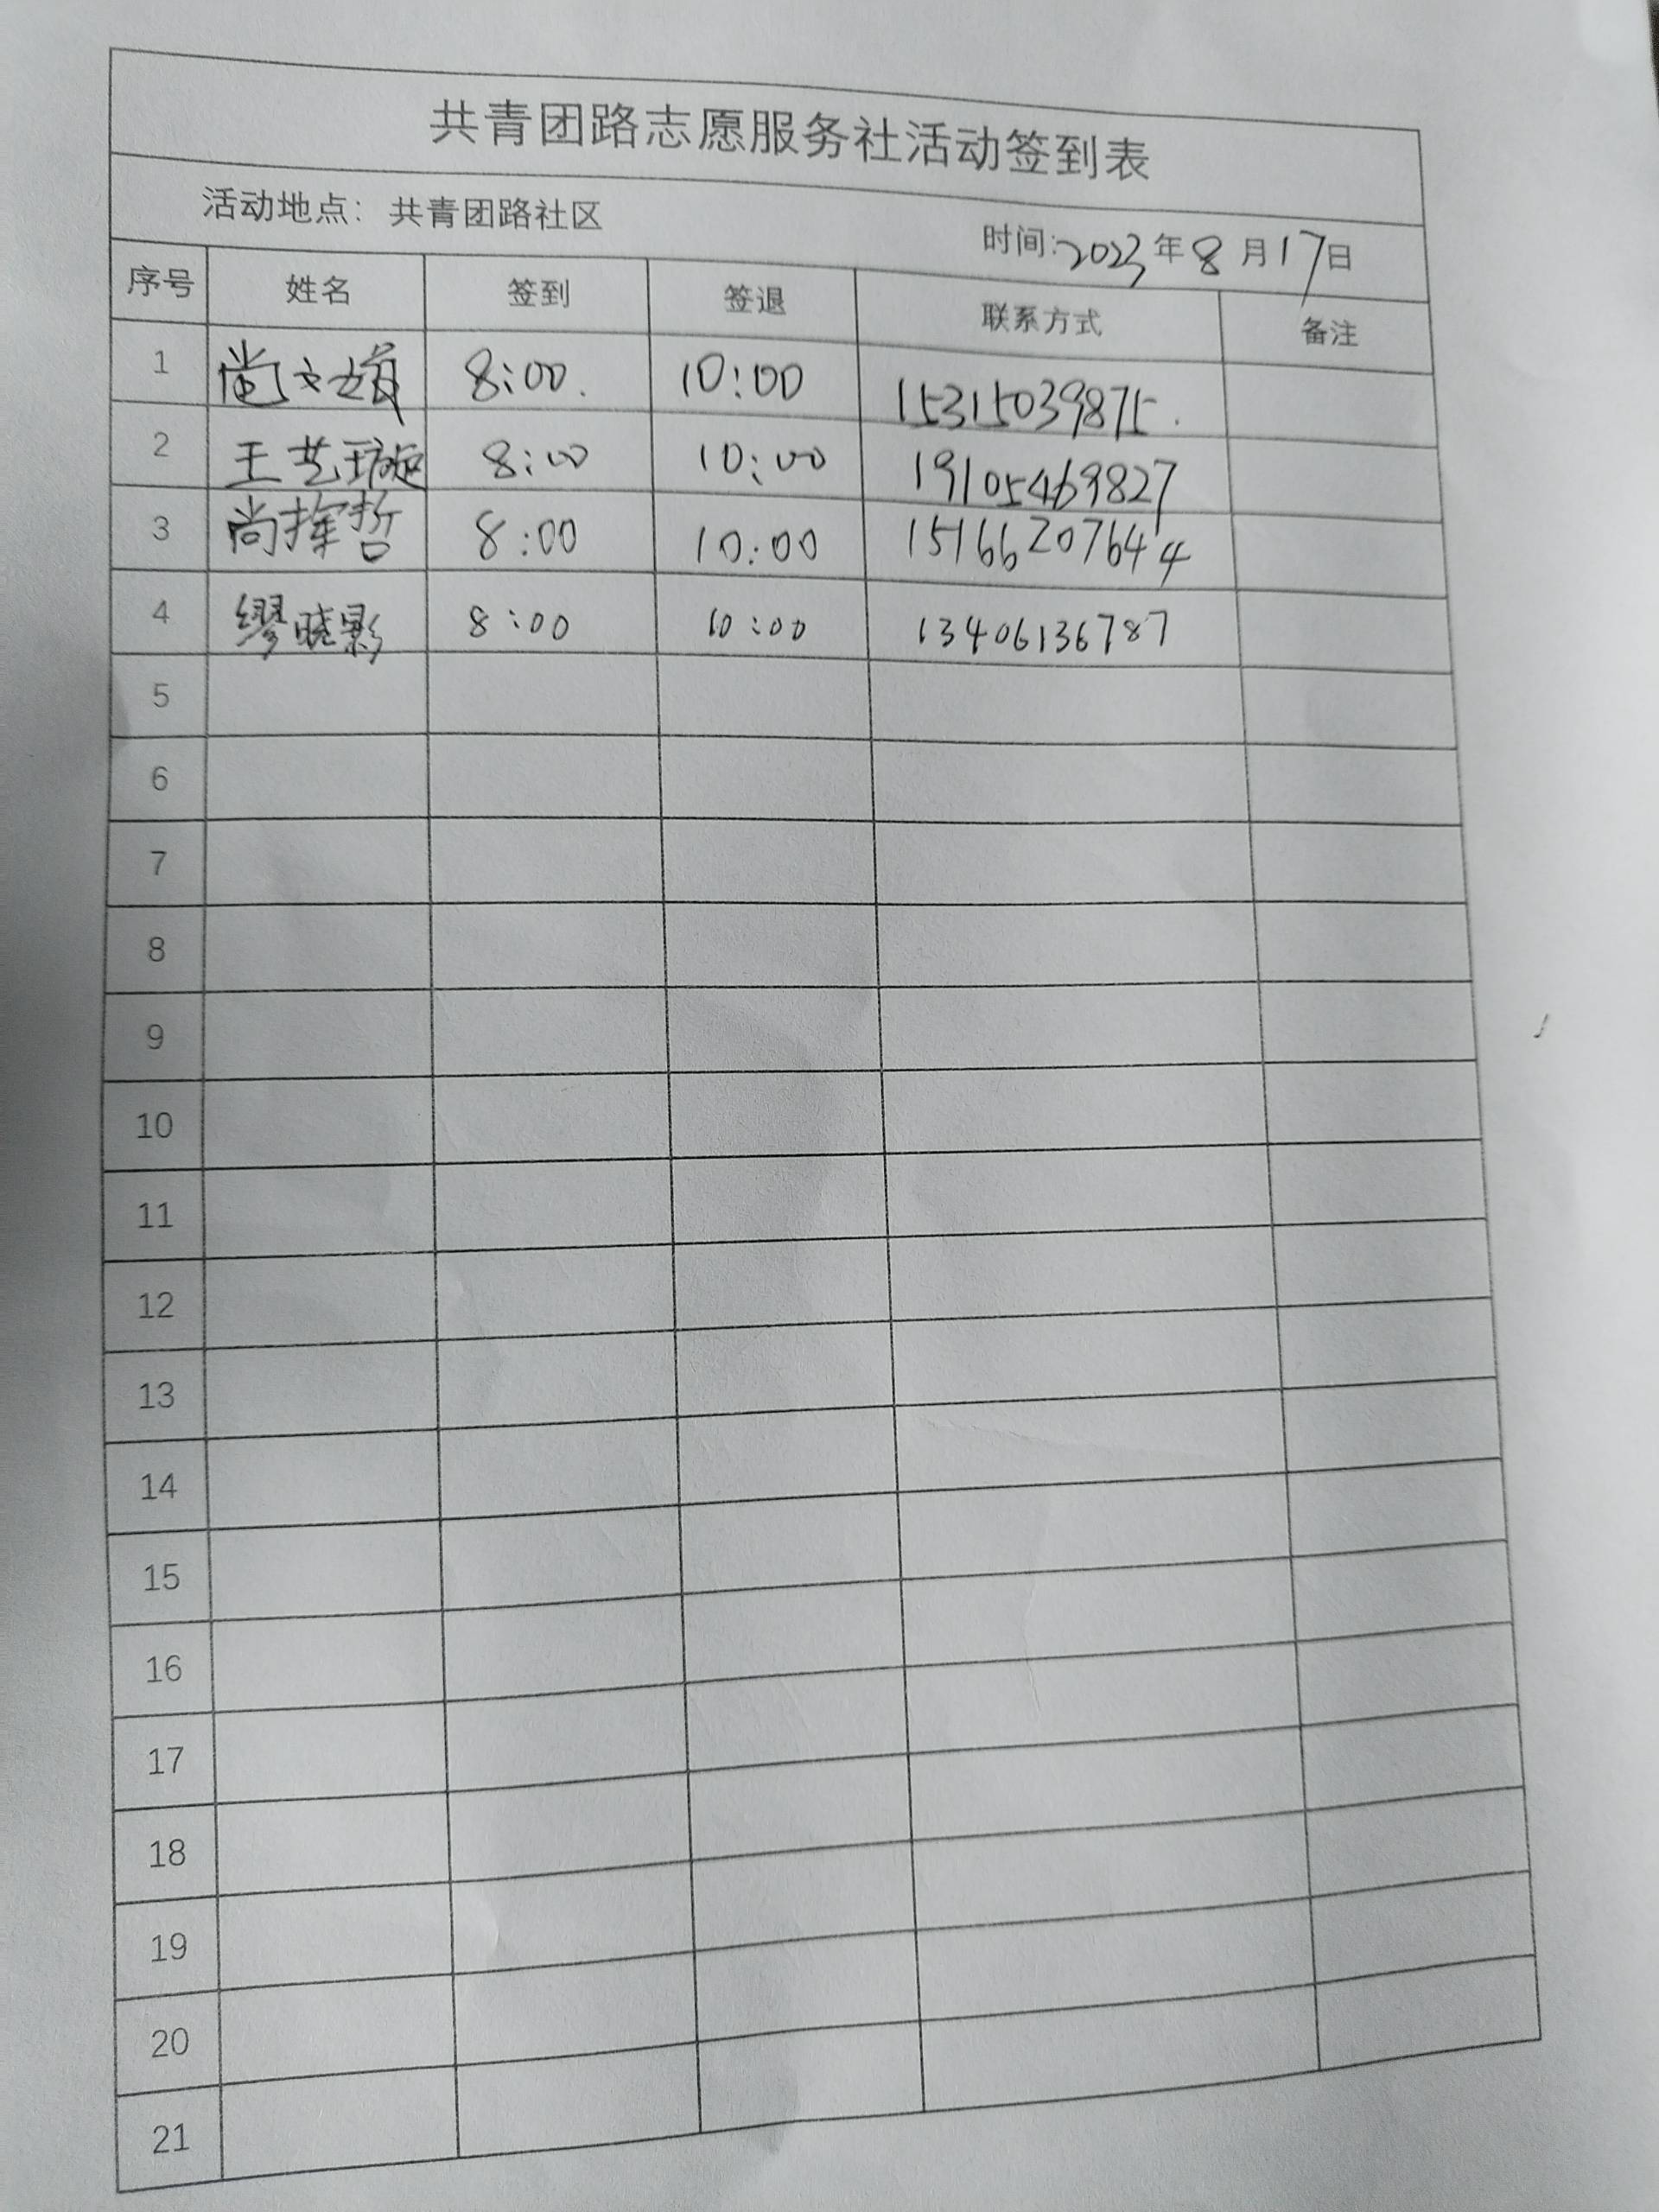 共青团路志愿服务社活动签到表
活动地点：共青团路社区 时间:2023年8月17日
序号 姓名 签到 签退 联系方式 备注
1 尚文 8:00. 10:00 15315039875.
2 王艺璇 8:00 10:00 19105469827
3 尚挥哲 8:00 10:00 15166207644
4 缪晓影 8:00 10:00 13406136787
5
6
7
8
9
10
11
12
13
14
15
16
17
18
19
20
21